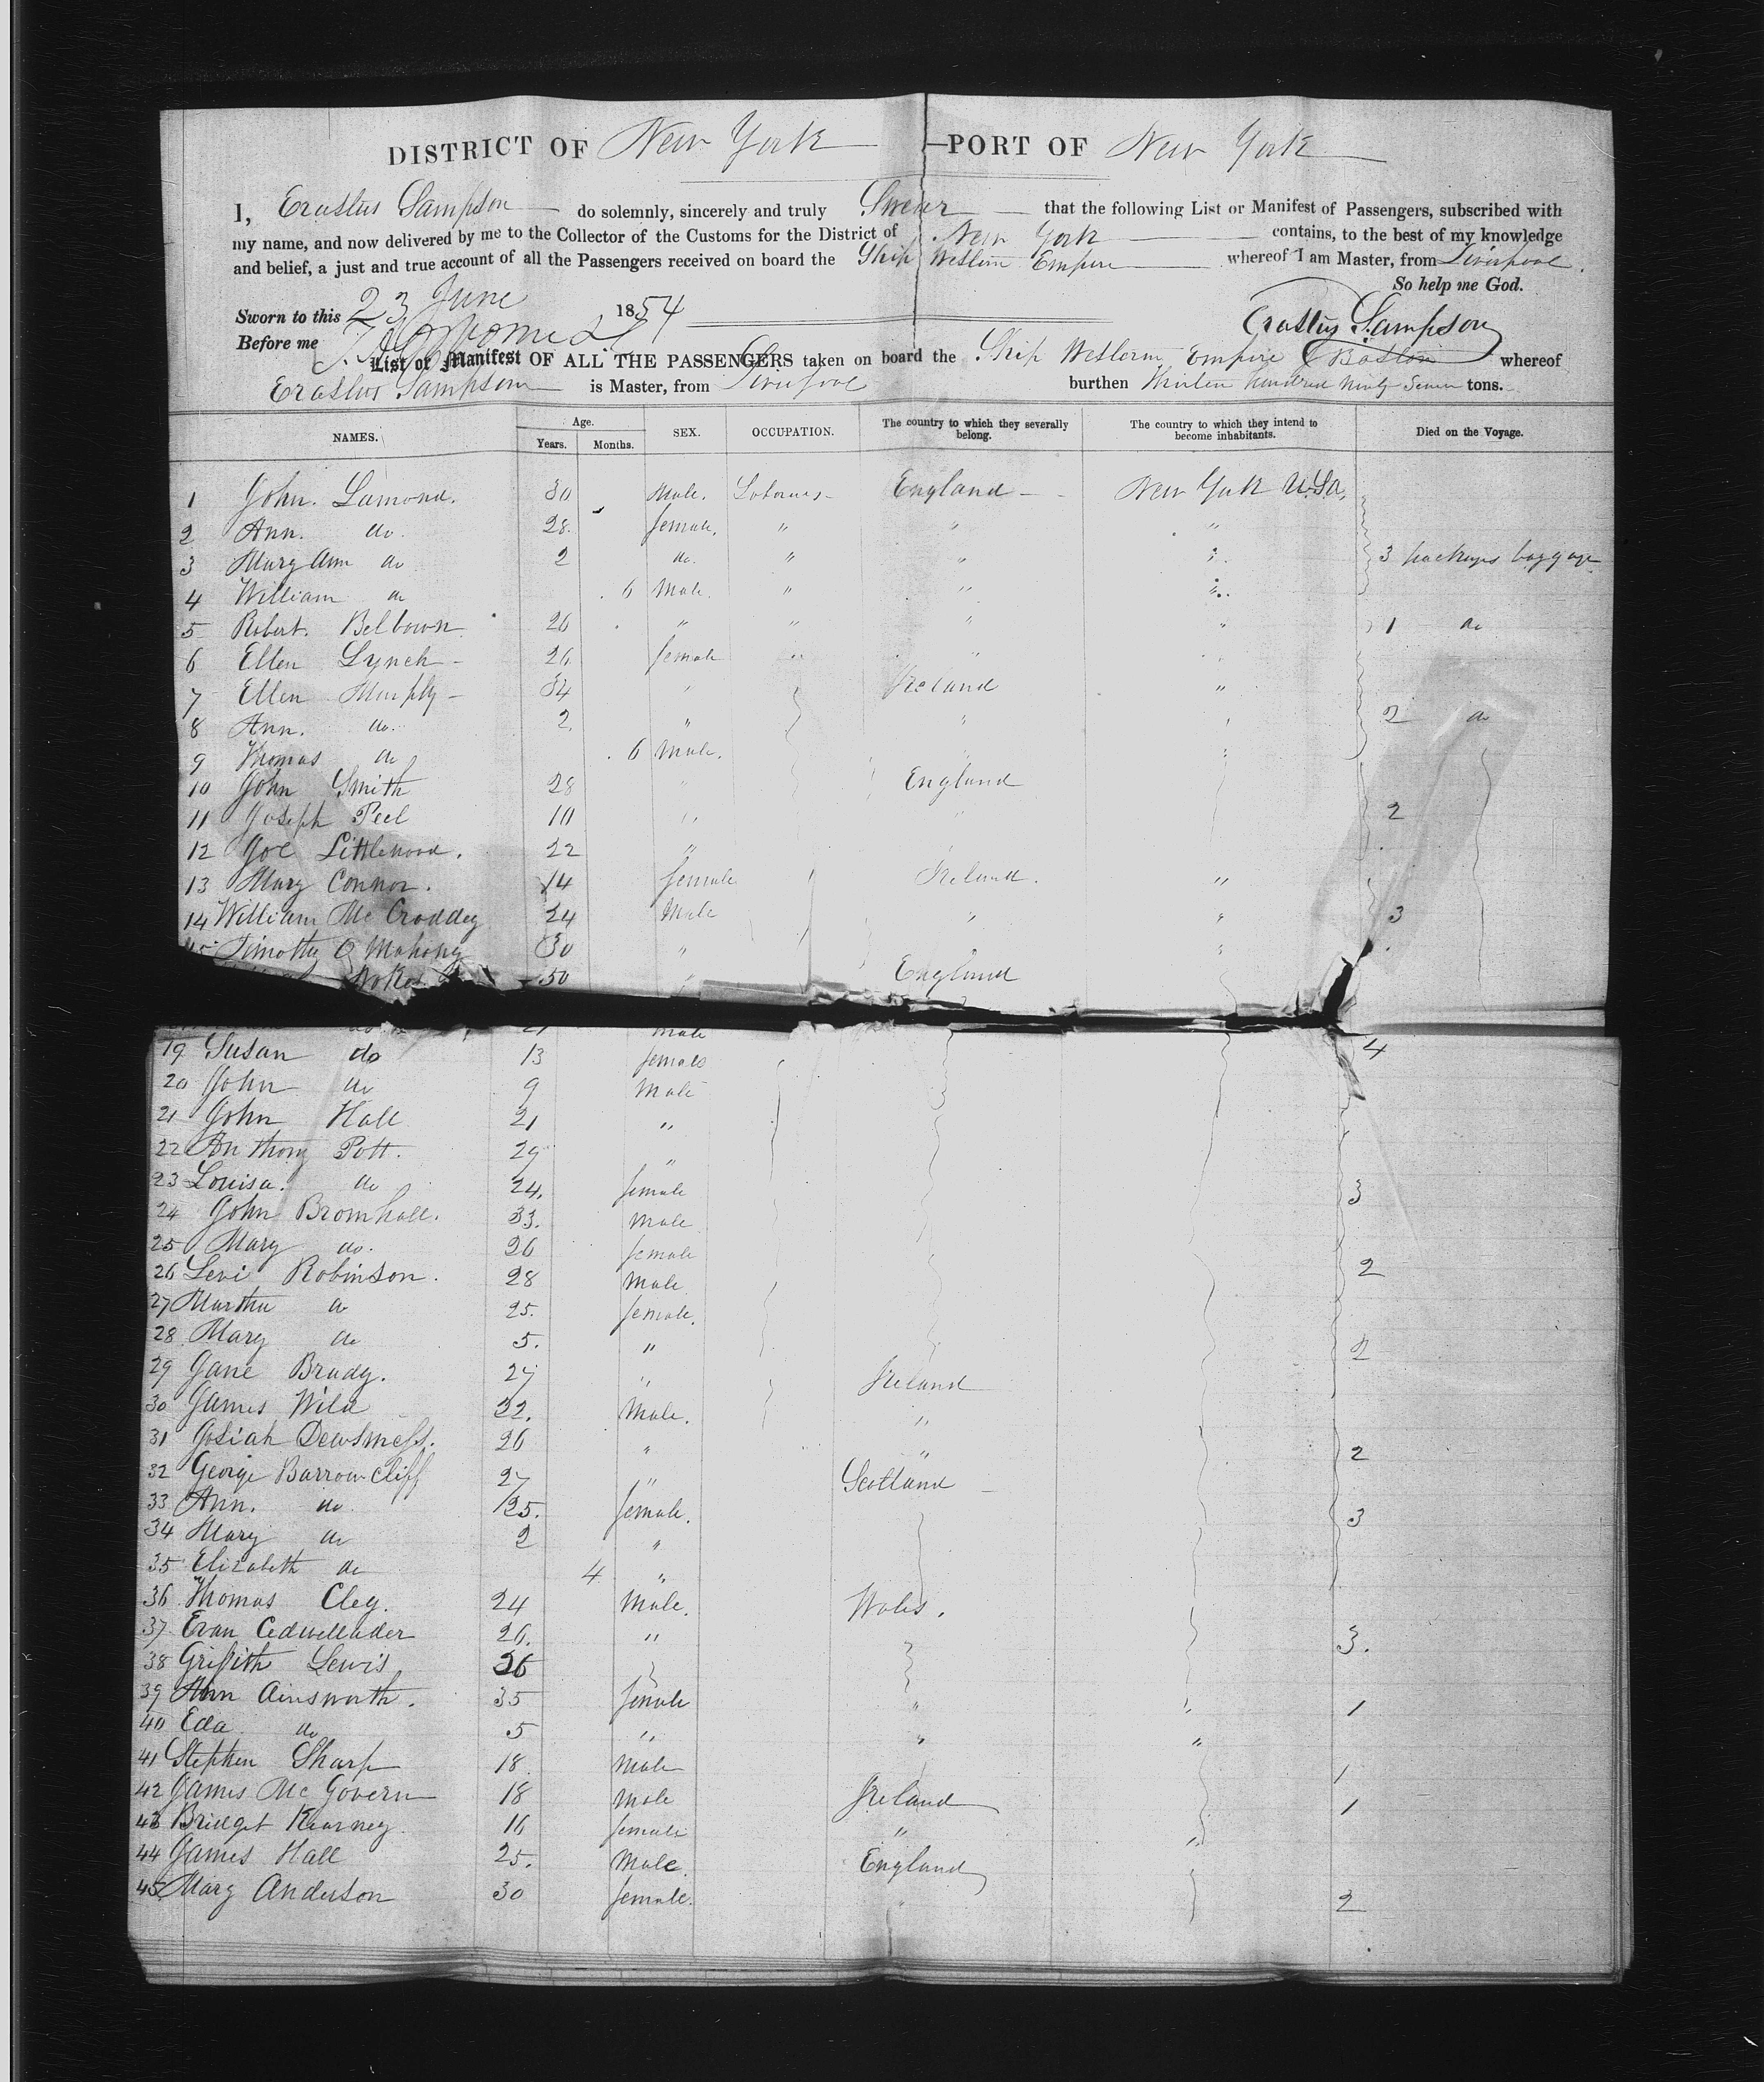 DISTRICT OF New York — PORT OF New York
I, Erastus Sampson do solemnly, sincerely and truly Swear that the following List or Manifest of Passengers, subscribed with
my name, and now delivered by me to the Collector of the Customs for the District of New York contains, to the best of my knowledge
and belief, a just and true account of all the Passengers received on board the Ship Western Empire whereof I am Master, from Liverpool.
So help me God.
Sworn to this 23 June 1854
Erastus Sampson
Before me
List or Manifest OF ALL THE PASSENGERS taken on board the Ship Western Empire of Boston whereof
Erastus Sampson is Master, from Liverpool burthen Thirteen hundred Ninty Seven tons.
NAMES. Age. Years. Months. SEX. OCCUPATION. The country to which they severally belong. The country to which they intend to become inhabitants. Died on the Voyage.
1 John. Lamond. 30 Male. Laborers England New York U.S.A.
2 Ann. do. 28. female. " " "
3 Mary Ann do 2 do. " " " 3 packages baggage
4 William do 6 Male. " " "
5 Robert. Belbown 26 " " " " 1 do
6 Ellen Lynch 26 female " "
7 Ellen Murphy 34 " Ireland "
8 Ann. do. 2 " " " 2 do
9 Thomas do 6 Male. "
10 John Smith 28 " England
11 Joseph Peel 10 " " 2
12 Joe Littlewood. 22 "
13 Mary Connor. 14 female Ireland. "
14 William Mc Croddey 24 Male " " 3
Timothy O Mahony 30 " "
50 " England
male
19 Susan do 13 female 4
20 John do 9 Male
21 John Hall 21 "
22 Anthony Pott. 29 "
23 Louisa. do 24. female 3
24 John Bromhall. 33. Male
25 Mary do. 26 female
26 Levi Robinson. 28 Male 2
27 Martha do 25. female.
28 Mary do 5. " 2
29 Jane Brady. 27 " Ireland
30 James Wild 32. Male. "
31 Josiah Dewsness. 26 " " 2
32 George Barrowcliff 27 " Scotland
33 Ann. do 25. female. 3
34 Mary do 2 "
35 Elizabeth do 4 "
36 Thomas Cleg. 24 Male. Wales.
37 Evan Cedwellader 26. " 3.
38 Griffith Lewis 26
39 Ann Ainsworth. 35 female " " 1
40 Eda do 5 " " "
41 Stephen Sharp 18. Male 1
42 James Mc Govern 18 Male Ireland 1
43 Bridget Kearney. 16 female " "
44 James Hall 25. Male. England
45 Mary Anderson 30 female. " 2